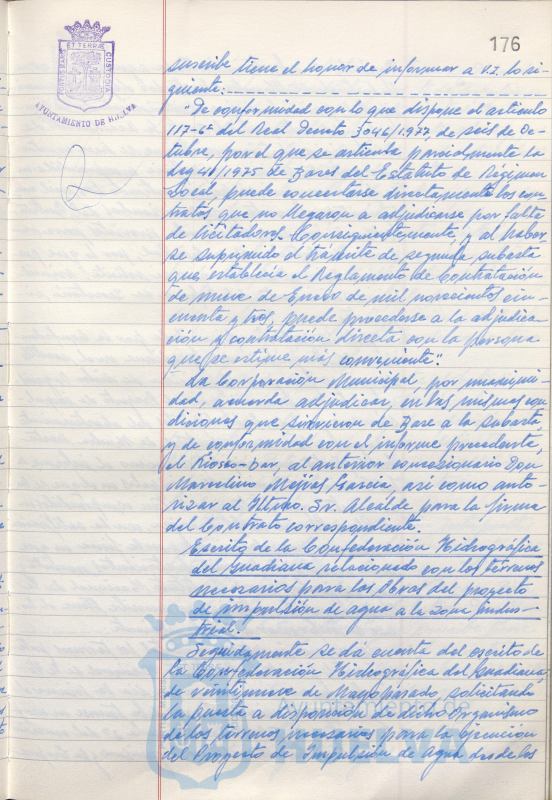 176
PORTUS MARIS ET TERRAE CUSTODIA
AYUNTAMIENTO DE HUELVA
suscribe tiene el honor de informar a V.I. lo si-
guiente:
"De conformidad con lo que dispone el artículo
117-6º del Real Decreto 3046/1977, de seis de Oc-
tubre, por el que se articula parcialmente la
Ley 41/1975 de Bases del Estatuto de Régimen
Local, puede concertarse directamente los con-
tratos que no llegaron a adjudicarse por falta
de licitadores. Consiguientemente, y al haber-
se suprimido el trámite de segunda subasta
que establecía el Reglamento de Contratación
de nueve de Enero de mil novecientos cin-
cuenta y tres, puede procederse a la adjudica-
ción y contratación directa con la persona
que se estime más conveniente".
La Corporación Municipal, por unanimi-
dad, acuerda adjudicar, en las mismas con
diciones que sirvieron de Base a la subasta
y de conformidad con el informe precedente,
el Kiosko-Bar, al anterior concesionario Don
Marcelino Mejías García, así como auto-
rizar al Iltmo. Sr. Alcalde para la firma
del Contrato correspondiente.
Escrito de la Confederación Hidrográfica
del Guadiana relacionado con los terrenos
necesarios para las Obras del proyecto
de impulsión de agua a la zona indus-
trial.
Seguidamente se dá cuenta del escrito de
la Confederación Hidrográfica del Guadiana,
de veintinueve de Mayo pasado, solicitando
la puesta a disposición de dicho Organismo
de los terrenos necesarios para la ejecución
del Proyecto de Impulsión de Agua desde los
Ayuntamiento de
HUELVA